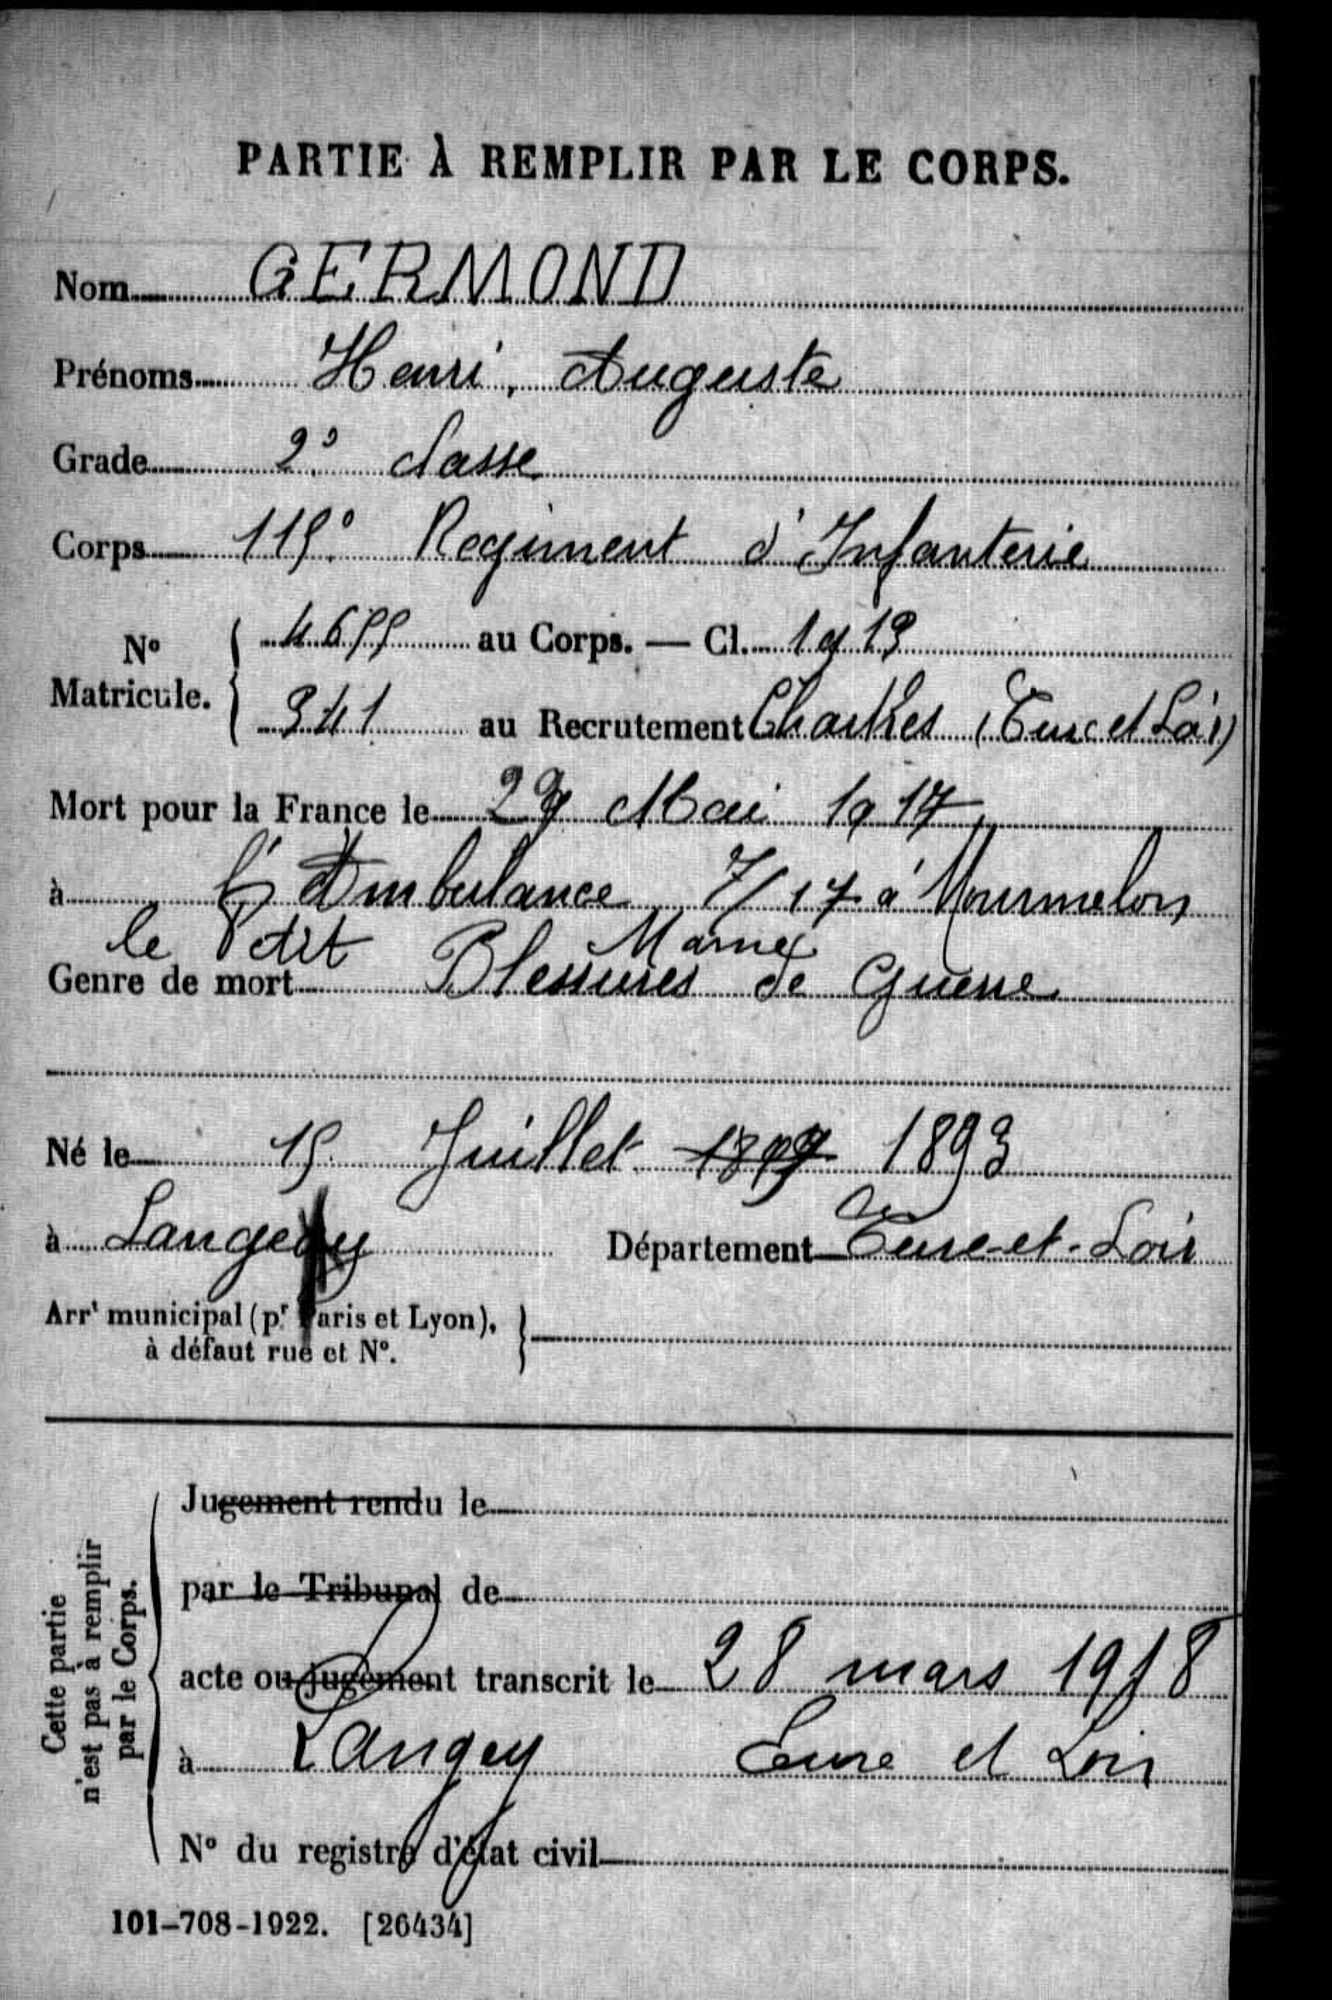 PARTIE À REMPLIR PAR LE CORPS.
Nom GERMOND
Prénoms Henri, Auguste
Grade 2e classe
Corps 115e Regiment d'Infanterie
No Matricule. 4655 au Corps. — Cl. 1913
341 au Recrutement Chartres (Eure et Loir)
Mort pour la France le 27 Mai 1917
à l'Ambulance 7/17 à Mourmelon
le Petit Marne
Genre de mort Blessures de Guerre
Né le 15 Juillet 1893
à Langey Département Eure-et-Loir
Arrt municipal (pr Paris et Lyon),
à défaut rue et No.
Cette partie
n'est pas à remplir
par le Corps.
Jugement rendu le
par le Tribunal de
acte ou jugement transcrit le 28 mars 1918
à Langey Eure et Loir
No du registre d'état civil
101-708-1922. [26434]